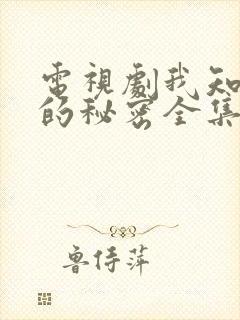 電視劇我知
的秘密全集
魯侍萍